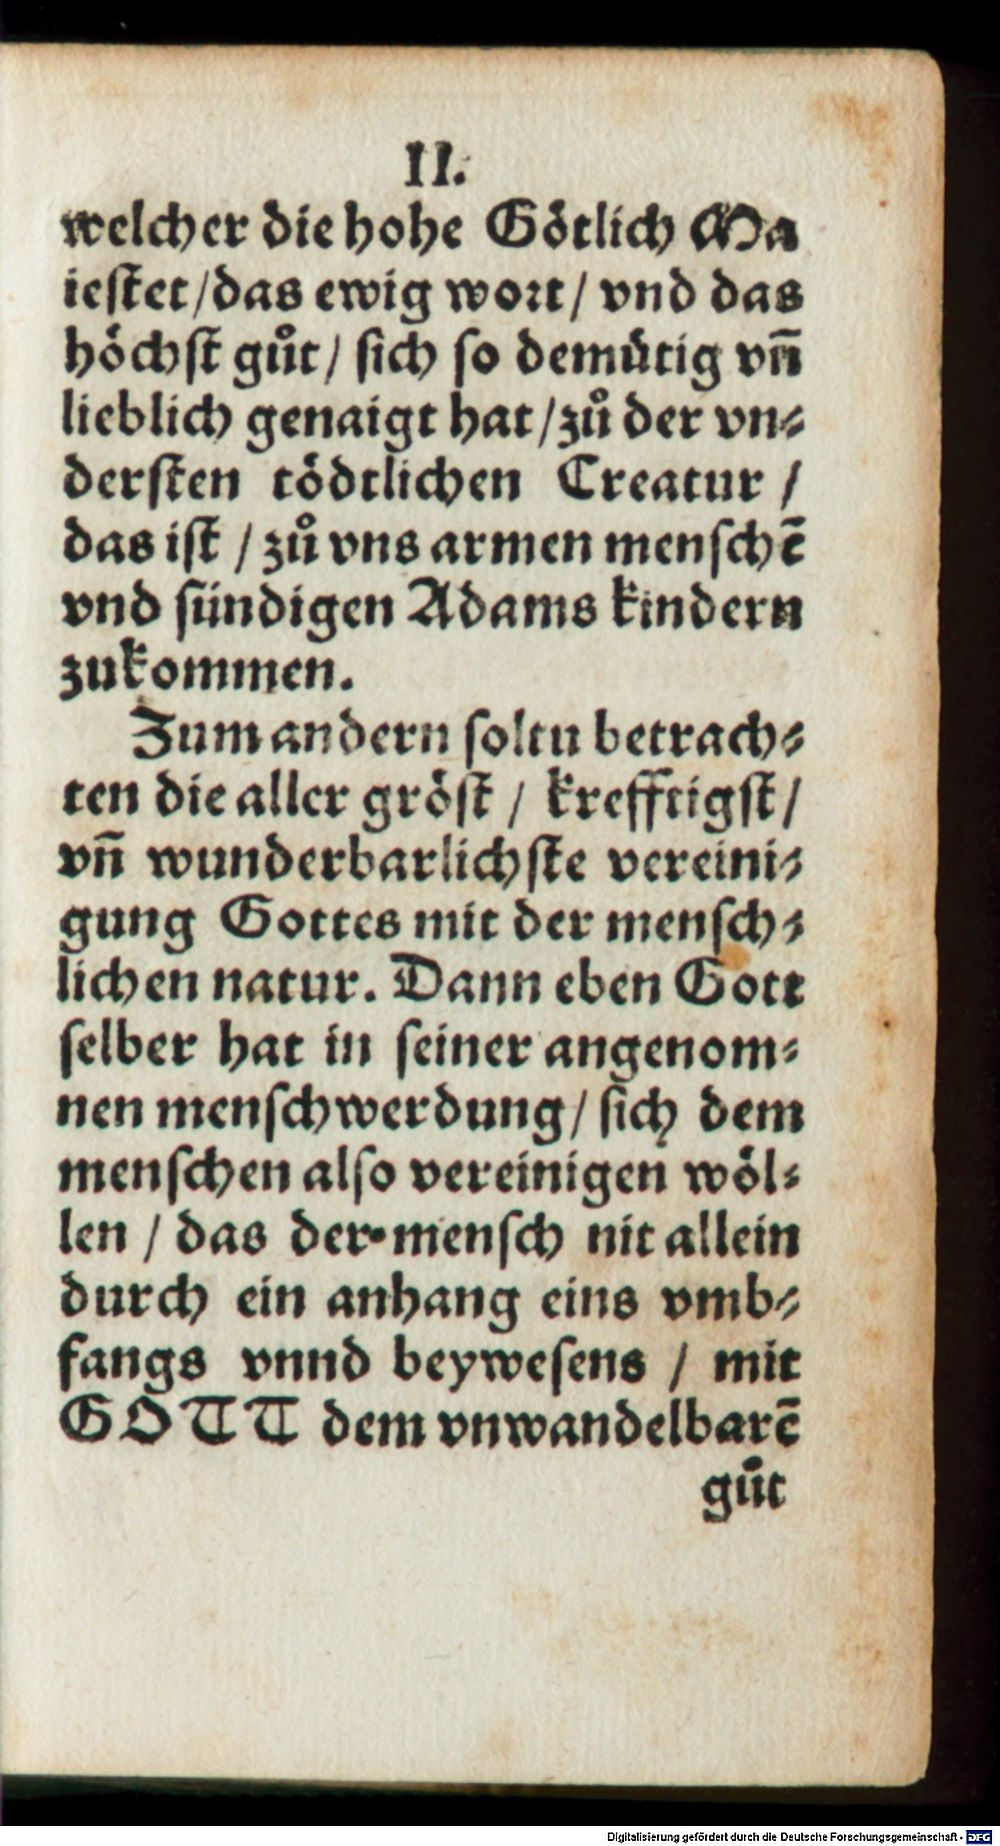 II.
welcher die hohe Götlich Ma
iestet/das ewig wort/ vnd das
höchſt gůt/ ſich ſo demütig vn̄
lieblich genaigt hat/zů der vn⸗
derſten tödtlichen Creatur /
das iſt / zů vns armen menſchē
vnd ſündigen Adams kindern
zukommen.
Zum andern ſoltu betrach⸗
ten die aller gröſt / krefftigſt/
vn̄ wunderbarlichſte vereini⸗
gung Gottes mit der menſch⸗
lichen natur. Dann eben Gott
ſelber hat in ſeiner angenom⸗
nen menſchwerdung/ ſich dem
menſchen alſo vereinigen wöl⸗
len / das der menſch nit allein
durch ein anhang eins vmb⸗
fangs vnnd beyweſens / mit
GOTT dem vnwandelbarē
gůt
Digitalisierung gefördert durch die Deutsche Forschungsgemeinschaft - DFG